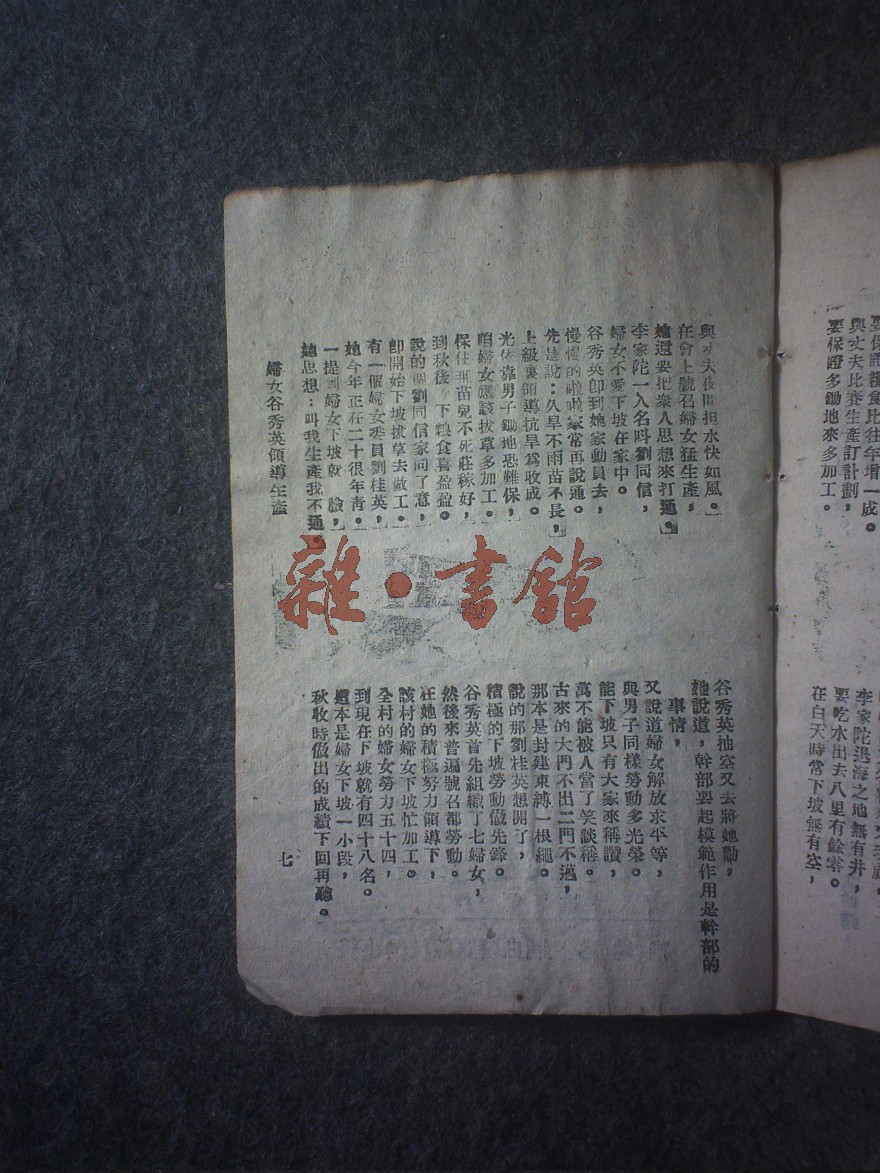 要保證糧食比往年增一成。
與丈夫比賽生產訂計劃，
要保證多鋤地來多加工。
李家陀迅海之地無有井，
要吃水出去八里有餘零。
在白天時常下坡無有空，
與丈夫夜間担水快如風。
在會上號召婦女猛生產，
她還要把衆人思想來打通。
李家陀一人名叫劉同信，
婦女不愛下坡在家中。
谷秀英卽到她家動員去，
慢慢的啦啦家常再說通。
先是說：久旱不雨苗不長，
上級裏領導抗旱爲收成。
光依靠男子鋤地恐難保，
咱婦女應該拔草多加工。
保住田苗兒不死莊稼好，
到秋後 下粮食喜盈盈。
說的 劉同信家同了意，
卽開始下坡拔草去做工。
有一個婦女委員劉桂英，
她今年正在二十很年青。
一提到婦女下坡就 臉，
她思想：叫我生產我不通。
婦女谷秀英領導生產
谷秀英抽空又去將她勸，
她說道，幹部要起模範作用是幹部的
事情，
又說道婦女解放求平等，
與男子同樣勞動多光榮。
能下坡只有大家來稱讚，
萬不能被人當了笑談稱。
古來的大門不出二門不邁，
那本是封建束縛一根繩。
說的那劉桂英想開了，
積極的下坡勞動做先鋒。
谷秀英首先組織了七婦女，
然後來普遍號召都勞動。
在她的積極努力領導下，
該村的婦女下坡忙加工。
全村的婦女勞力五十四，
到現在下坡就有四十八名。
這本是婦女下坡一小段，
秋收時做出的成績下回再聽。
七
雜·書館